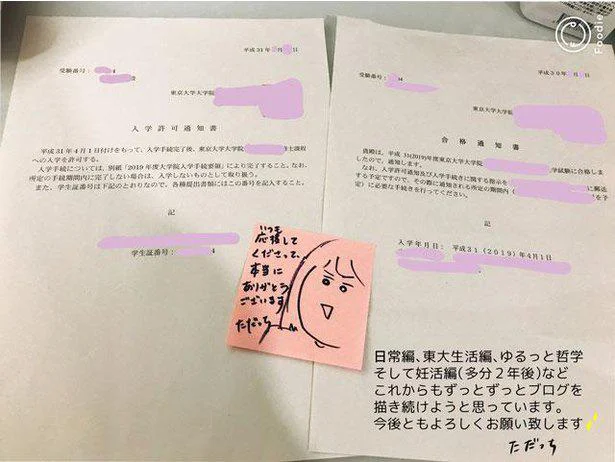 平成31年 月 日
受験番号: 4
東京大学大学院
入学許可通知書
平成31年4月1日付けをもって、入学手続完了後、東京大学大学院 修士課程
への入学を許可する。
入学手続については、別紙「2019年度大学院入学手続要領」により完了すること。なお、
所定の手続期間内に完了しない場合は、入学しないものとして取り扱う。
また、学生証番号は下記のとおりなので、各種提出書類にはこの番号を記入すること。
記
学生証番号: 4
平成30年 月 日
受験番号:
東京大学大学院
合格通知書
貴殿は、平成31(2019)年度東京大学大学院 学試験に合格しま
したので、通知します。
なお、入学許可通知及び入学手続きに関する指示を に郵送
する予定ですので、その際に通知される所定の期間内( を予
定)に必要な手続きを行ってください。
記
入学年月日: 平成31(2019)年4月1日
いつも
応援して
くださって、
本当に
ありがとう
ございます
ただっち
日常編、東大生活編、ゆるっと哲学
そして妊活編(多分2年後)など
これからもずっとずっとブログを
描き続けようと思っています。
今後ともよろしくお願い致します
ただっち
Foodie